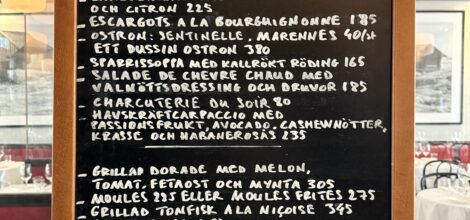 OCH CITRON 225
- ESCARGOTS A LA BOURGUIGNONNE 185
- OSTRON: SENTINELLE, MARENNES 40/st
ETT DUSSIN OSTRON 380
- SPARRISSOPPA MED KALLRÖKT RÖDING 165
- SALADE DE CHEVRE CHAUD MED
VALNÖTTSDRESSING OCH DRUVOR 185
- CHARCUTERIE DU SOIR 80
HAVSKRÄFTCARPACCIO MED
PASSIONSFRUKT, AVOCADO, CASHEWNÖTTER,
KRASSE OCH HABANEROSÅS 235
- GRILLAD DORADE MED MELON,
TOMAT, FETAOST OCH MYNTA 305
- MOULES 225 ELLER MOULES FRITES 275
- GRILLAD TONFISK A LA NIÇOISE 345